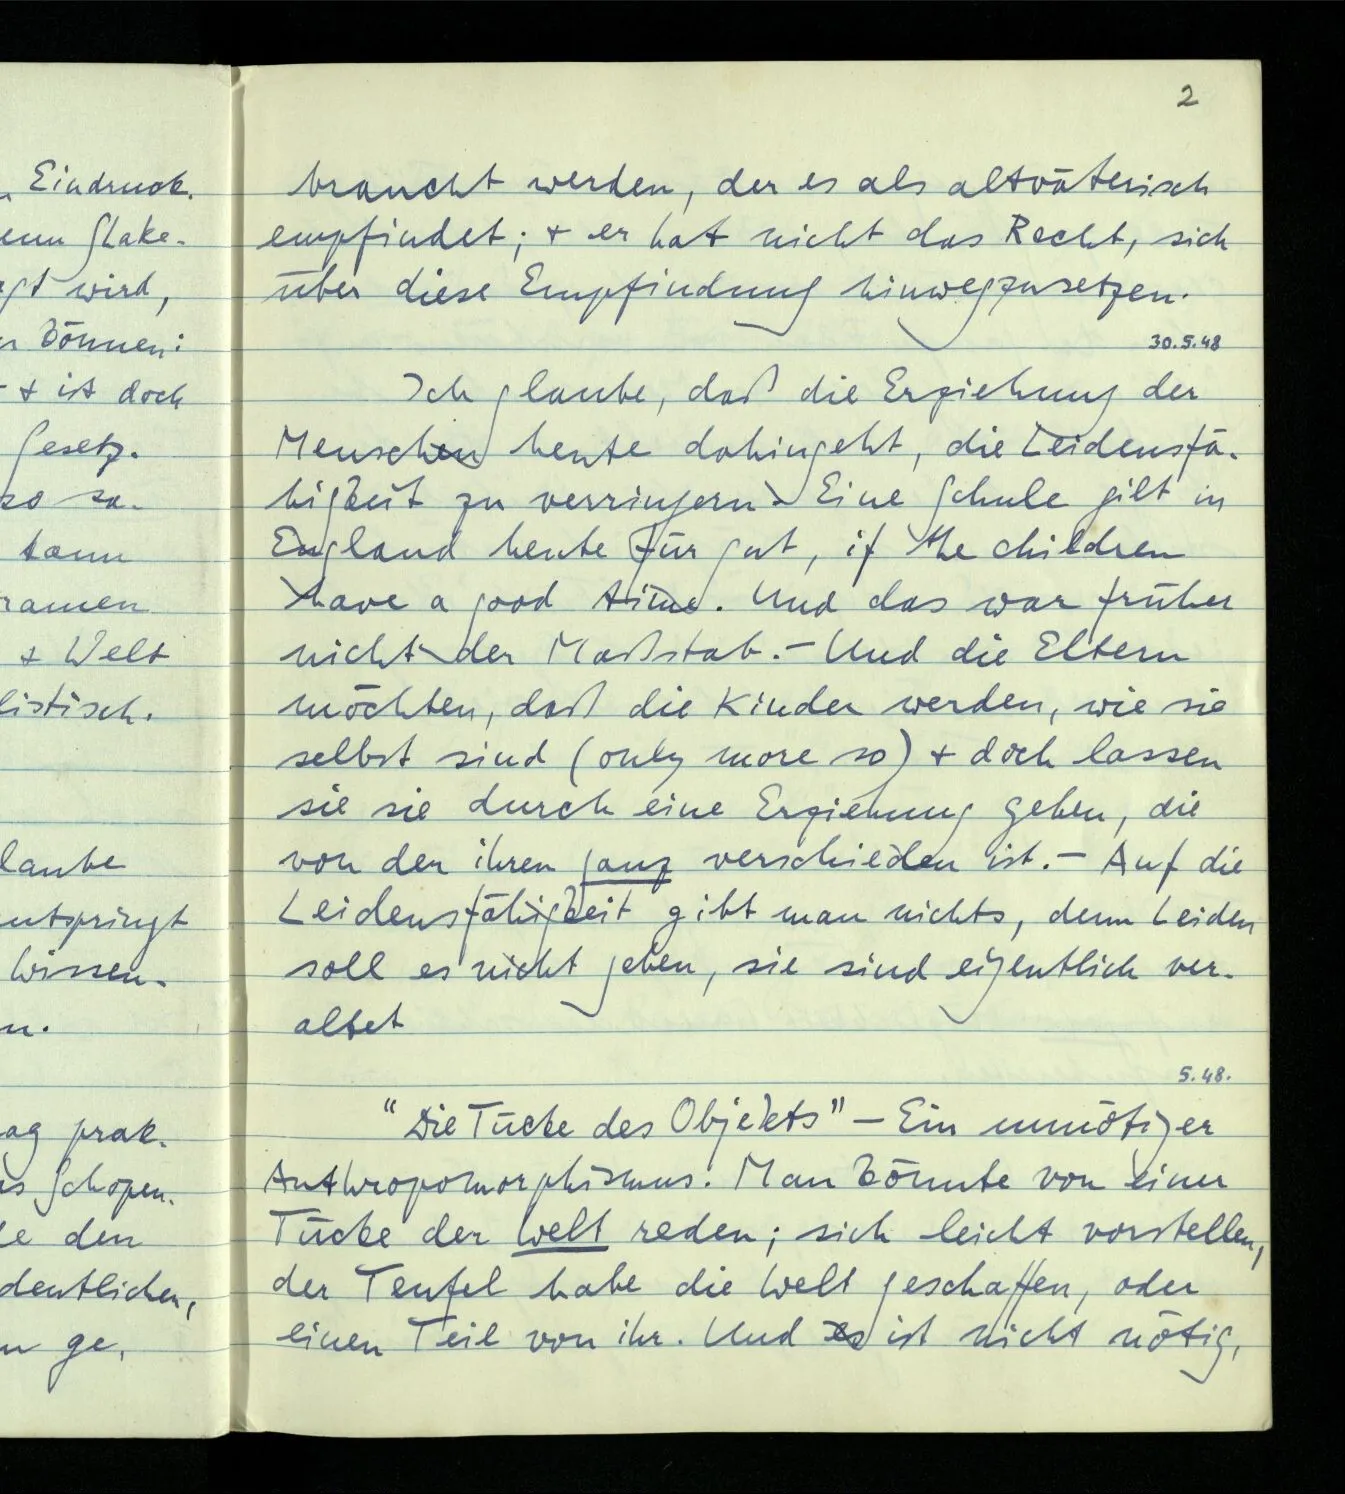 Eindruck.
Shake-
wird,
können:
+ ist doch
Gesetz.
so sa-
kann
ramen
+ Welt
listisch.
laube
entspringt
Wissen-
n.
ag prak-
Schopen-
le den
dentlichen,
ge,
2
braucht werden, der es als altväterisch
empfindet; + er hat nicht das Recht, sich
über diese Empfindung hinwegzusetzen.
30.5.48
Ich glaube, daß die Erziehung der
Menschen heute dahingeht, die Leidensfä-
higkeit zu verringern. Eine Schule gilt in
England heute für gut, if the children
have a good time. Und das war früher
nicht der Maßstab. – Und die Eltern
möchten, daß die Kinder werden, wie sie
selbst sind (only more so) + doch lassen
sie sie durch eine Erziehung gehen, die
von der ihren ganz verschieden ist. – Auf die
Leidensfähigkeit gibt man nichts, denn Leiden
soll es nicht geben, sie sind eigentlich ver-
altet
5.48.
"Die Tücke des Objekts" – Ein unnötiger
Anthropomorphismus. Man könnte von einer
Tücke der Welt reden; sich leicht vorstellen,
der Teufel habe die Welt geschaffen, oder
einen Teil von ihr. Und es ist nicht nötig,